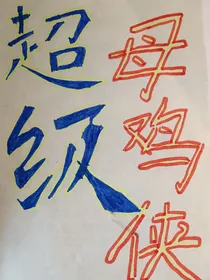 超级
母鸡侠